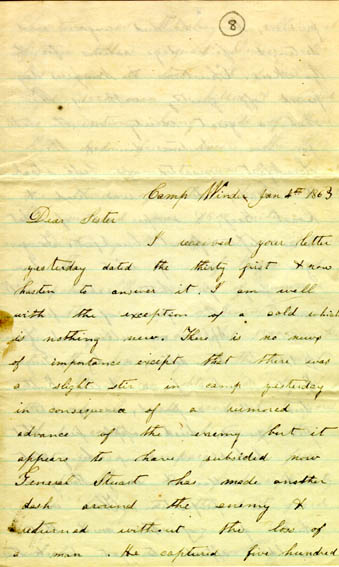 8
Camp Winder Jan 4th 1863
Dear Sister
I received your letter
yesterday dated the thirty first & now
hasten to answer it. I am well
with the exception of a cold which
is nothing new. There is no news
of importance except that there was
a slight stir in camp yesterday
in consequence of a rumored
advance of the enemy but it
appears to have subsided now
General Stuart has made another
dash around the enemy &
returned without the loss of
a man. He captured five hundred